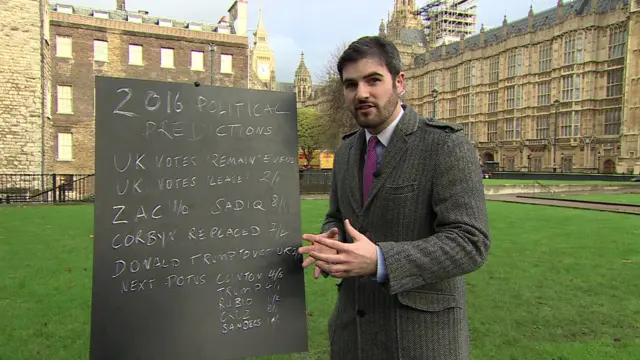 2016 POLITICAL
PREDICTIONS
UK VOTES 'REMAIN' EVENS
UK VOTES 'LEAVE' 2/1
ZAC SADIQ 8/1
CORBYN REPLACED 7/2
DONALD TRUMP TO VISIT UK
NEXT POTUS CLINTON 4/6
TRUMP
RUBIO
CRUZ 8/1
SANDERS